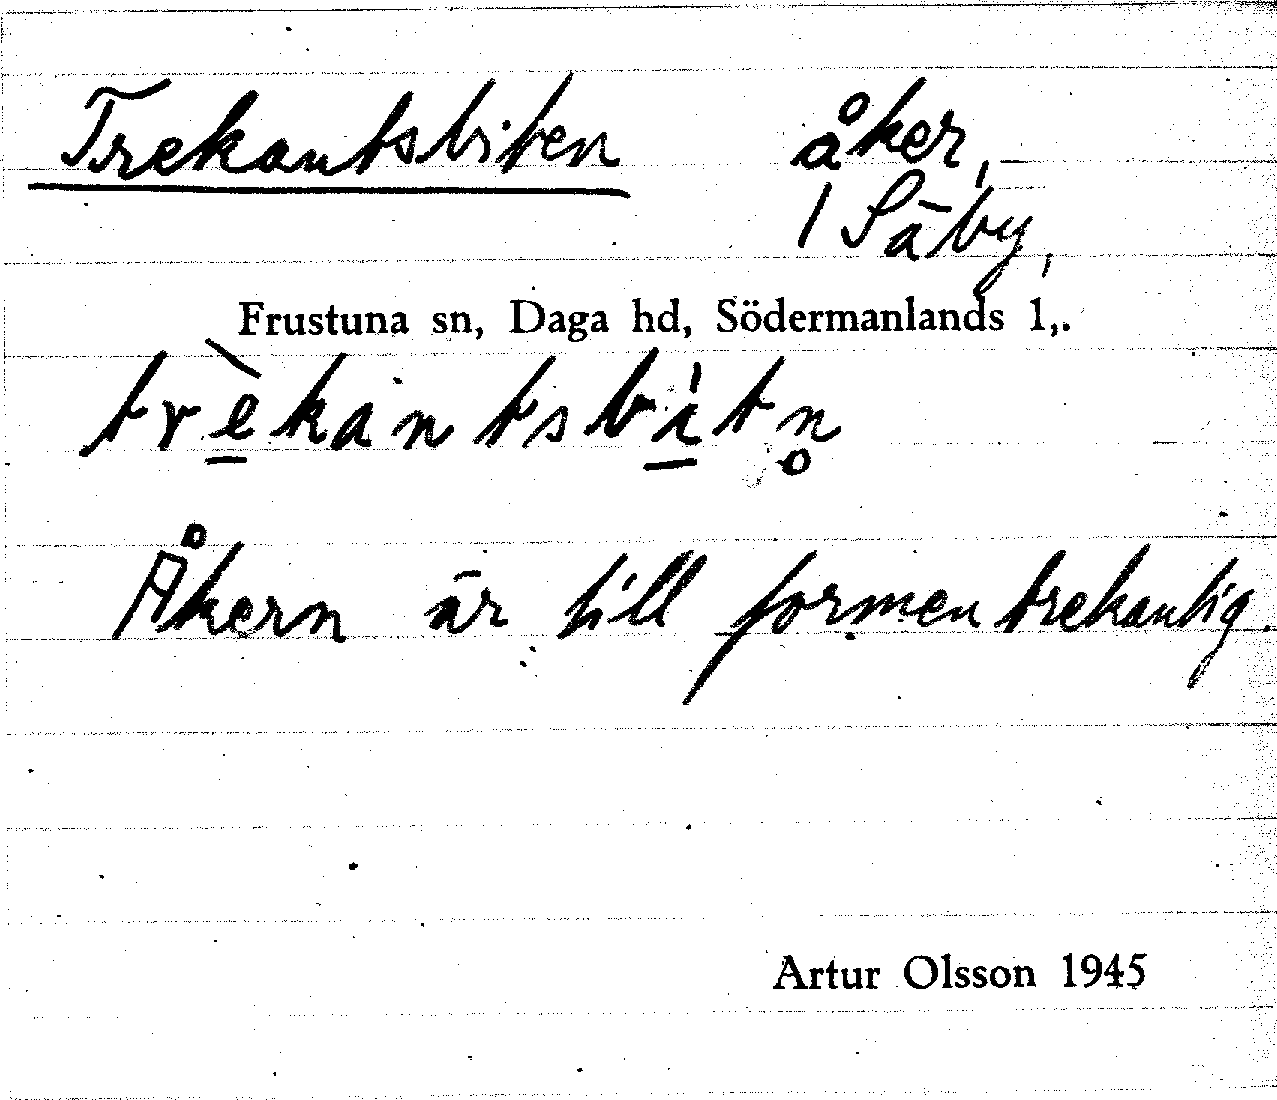 Trekantsbiten åker,
1 Säby,
Frustuna sn, Daga hd, Södermanlands l,.
trè̠kantsbi̠̍tn̥
Åkern är till formen trekantig.
Artur Olsson 1945